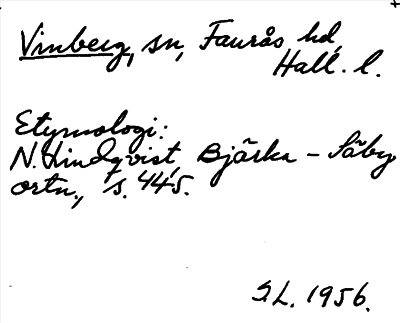 Vinberg, sn, Faurås hd,
Hall. l.
Etymologi:
N. Lindqvist, Bjärka - Säby
ortn., s. 445.
S.L. 1956.